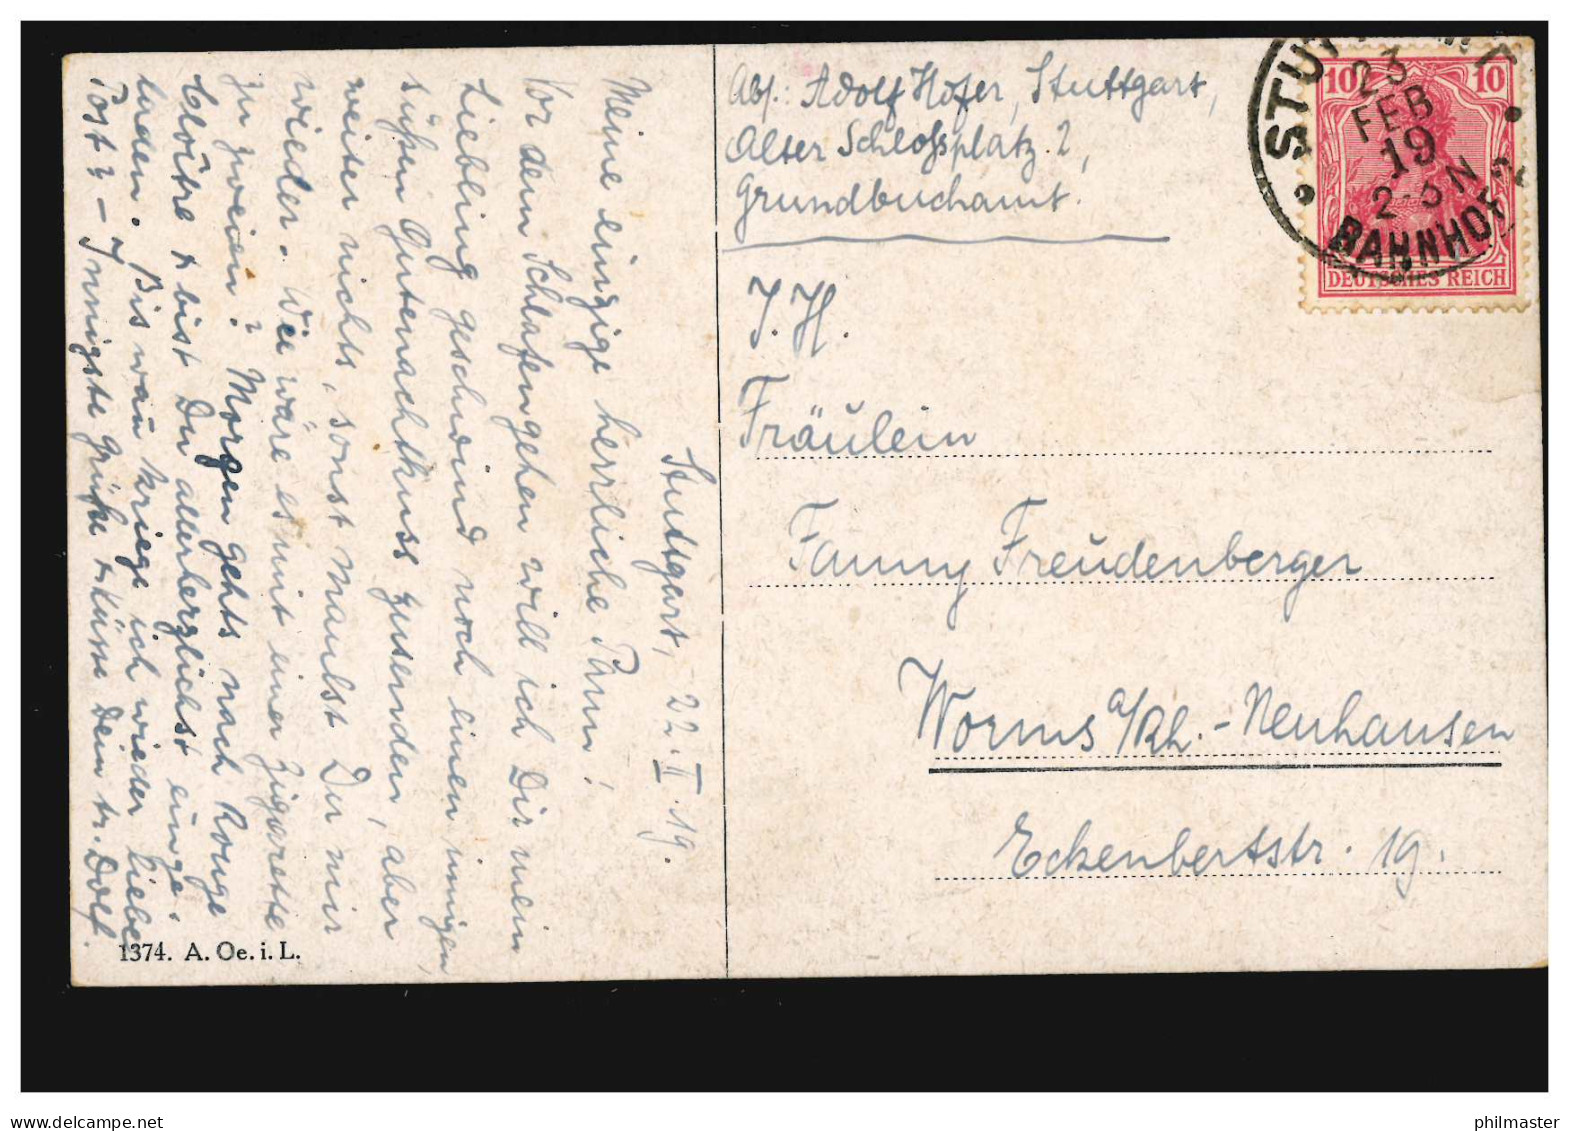 Stuttgart, 22. II. 19.
Meine einzige herrliche Pum!
Vor dem Schlafengehen will ich Dir mein
Liebling geschwind noch einen innigen,
süßen Gutenachtkuss zusenden, aber
weiter nichts, sonst maulst Du mir
wieder. Wie wäre es mit einer Zigarette
zu zweien? Morgen gehts nach Rouge
Cloître & bist Du allerherzlichst einge-
laden. Bis wann kriege ich wieder liebe
Post? - Innigste Grüße & Küsse Dein tr. Dolf.
1374. A. Oe. i. L.
Abs.: Adolf Hofer, Stuttgart,
Alter Schloßplatz 2,
Grundbuchamt.
J. H.
Fräulein
Fanny Freudenberger
Worms a/Rh. - Neuhausen
Eckenbertstr. 19.
10 10
DEUTSCHES REICH
23
FEB
19
2-3 N
BAHNHOF
delcampe.net
philmaster